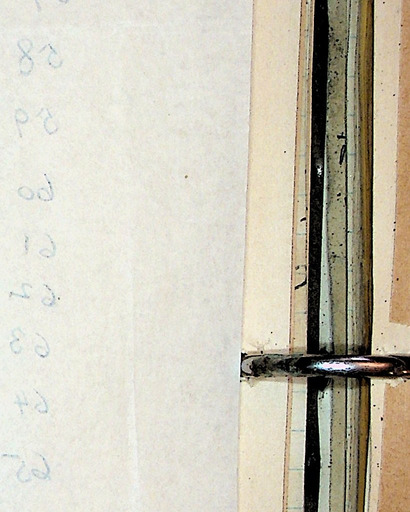 58
59
60
61
62
63
64
65